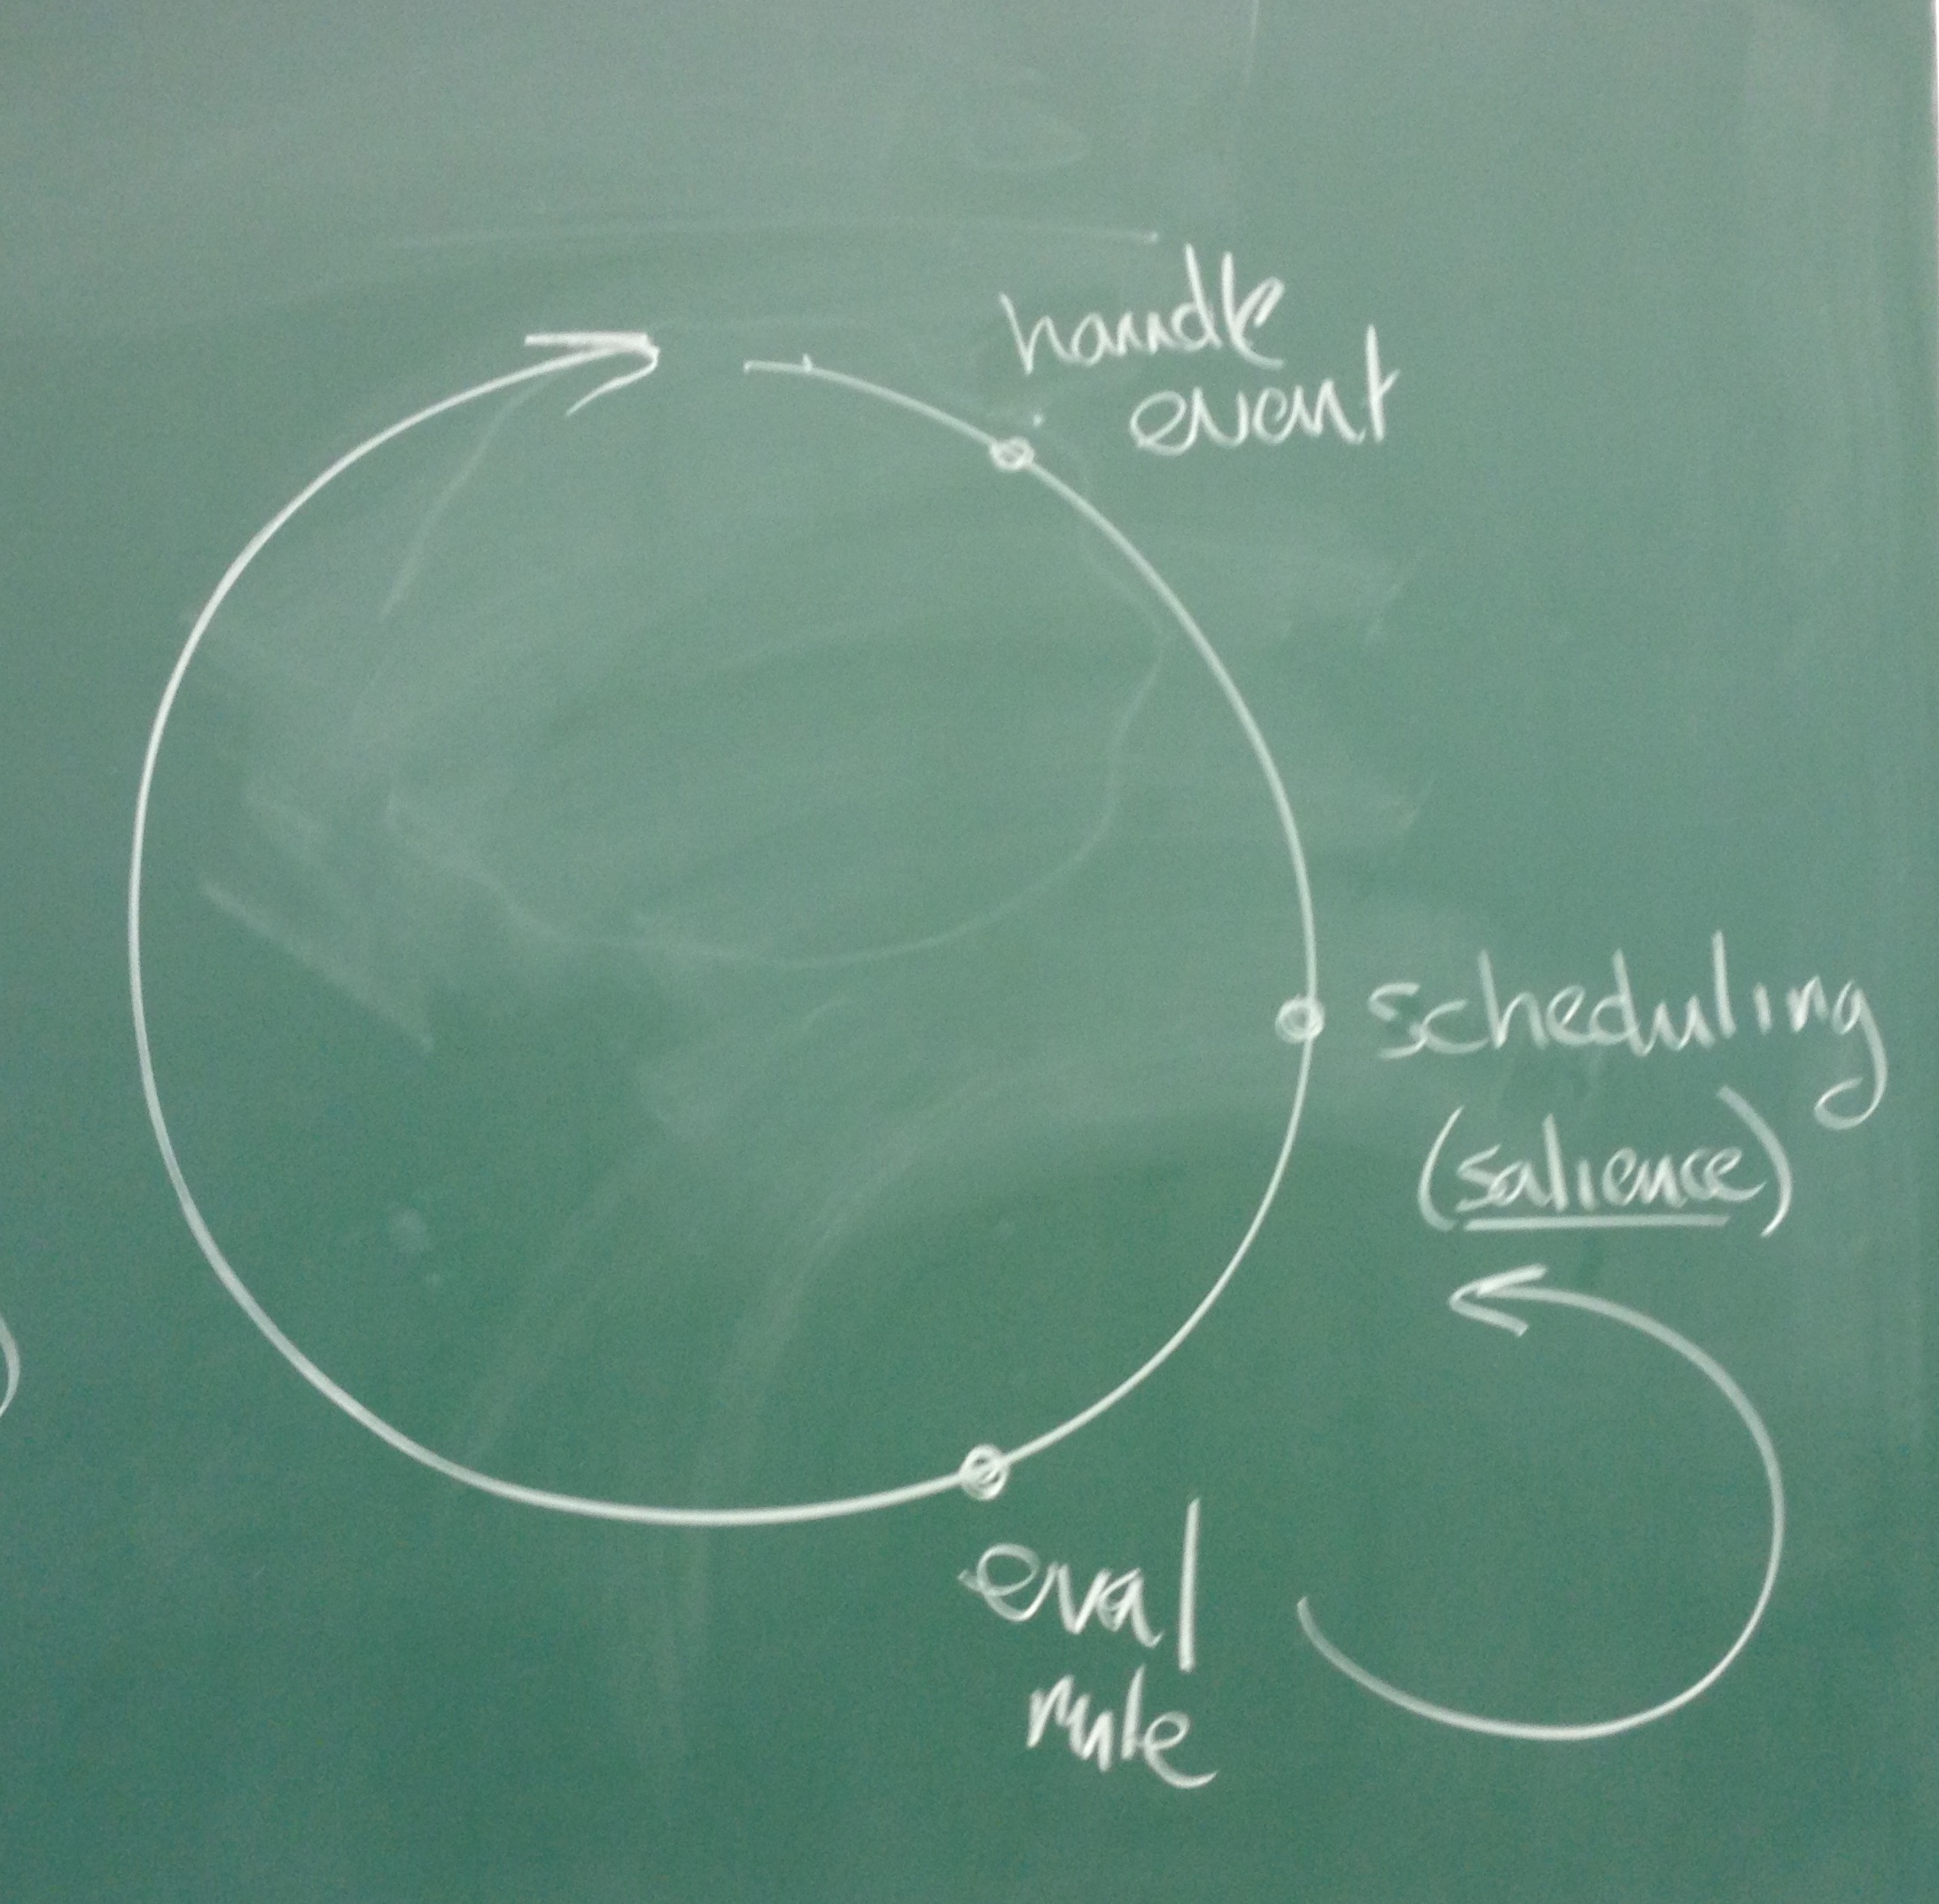 handle
event
scheduling
(salience)
eval
rule